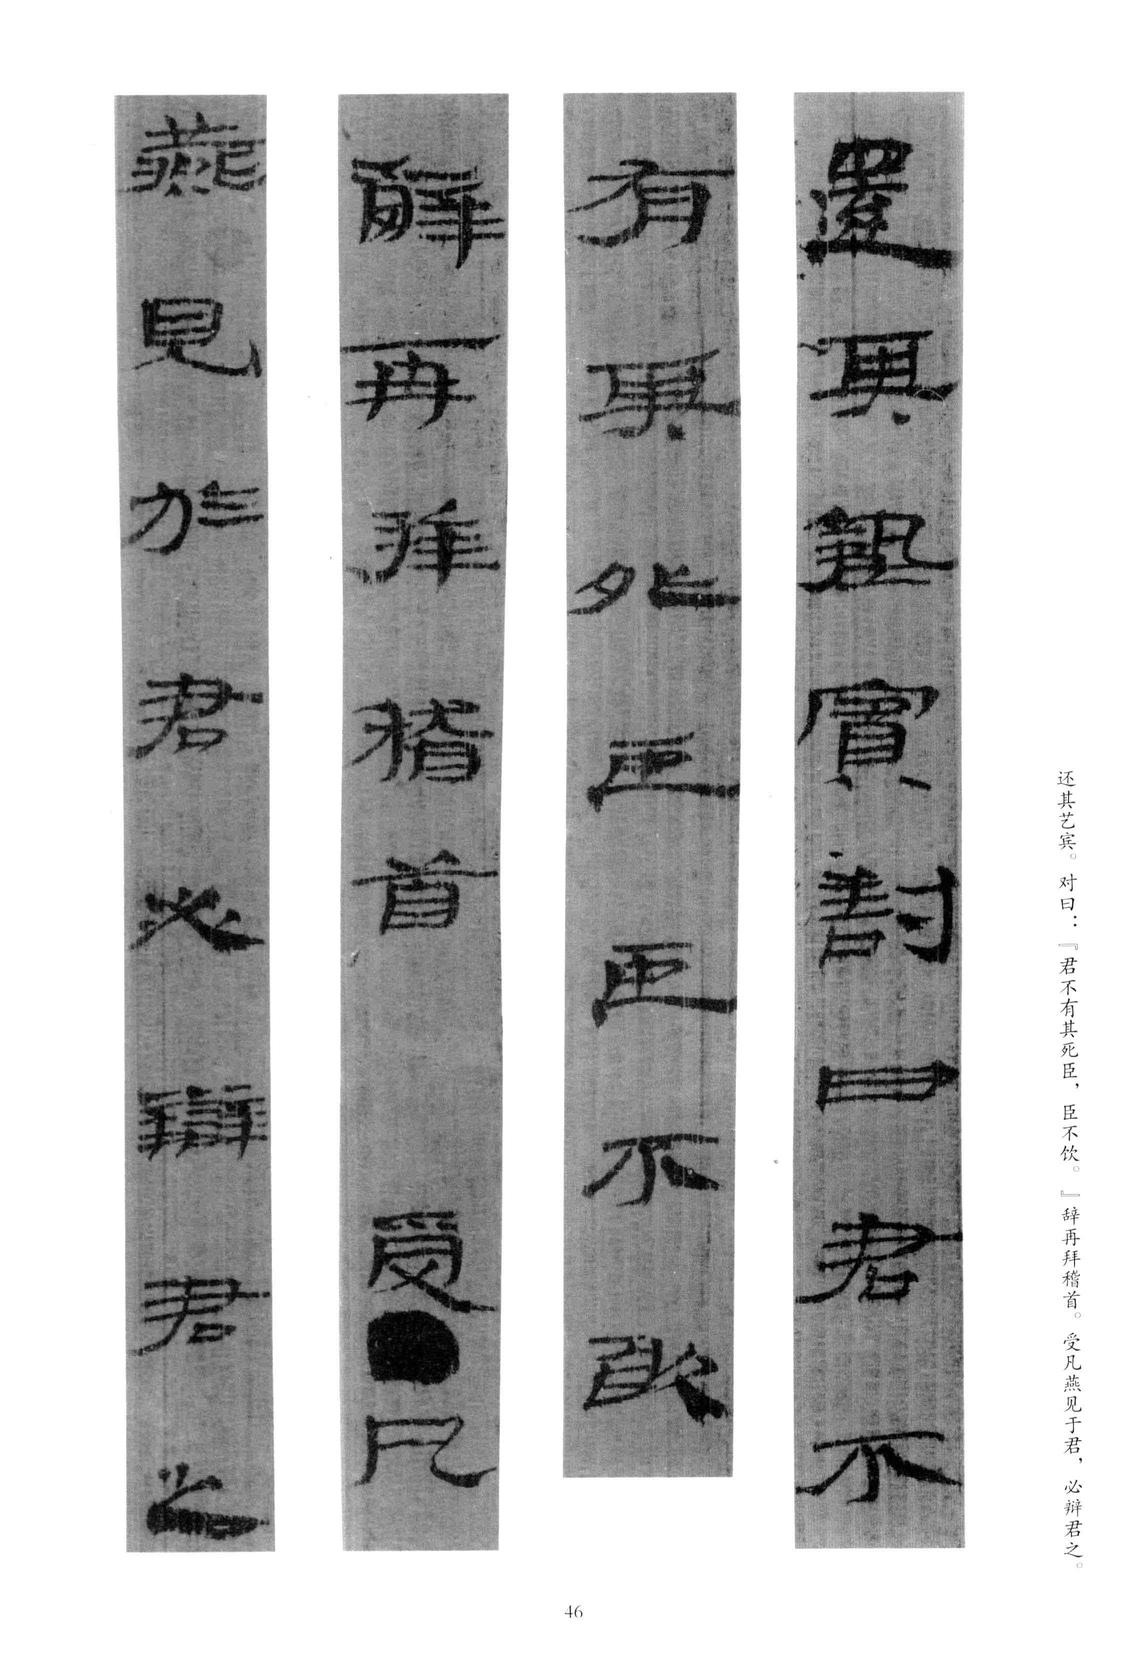 還其埶賓對曰君不
有其外臣臣不敢
辭再拜稽首 受●凡
燕見於君必辯君之
还其艺宾。对曰：『君不有其死臣，臣不饮。』辞再拜稽首。受凡燕见于君，必辩君之。
46